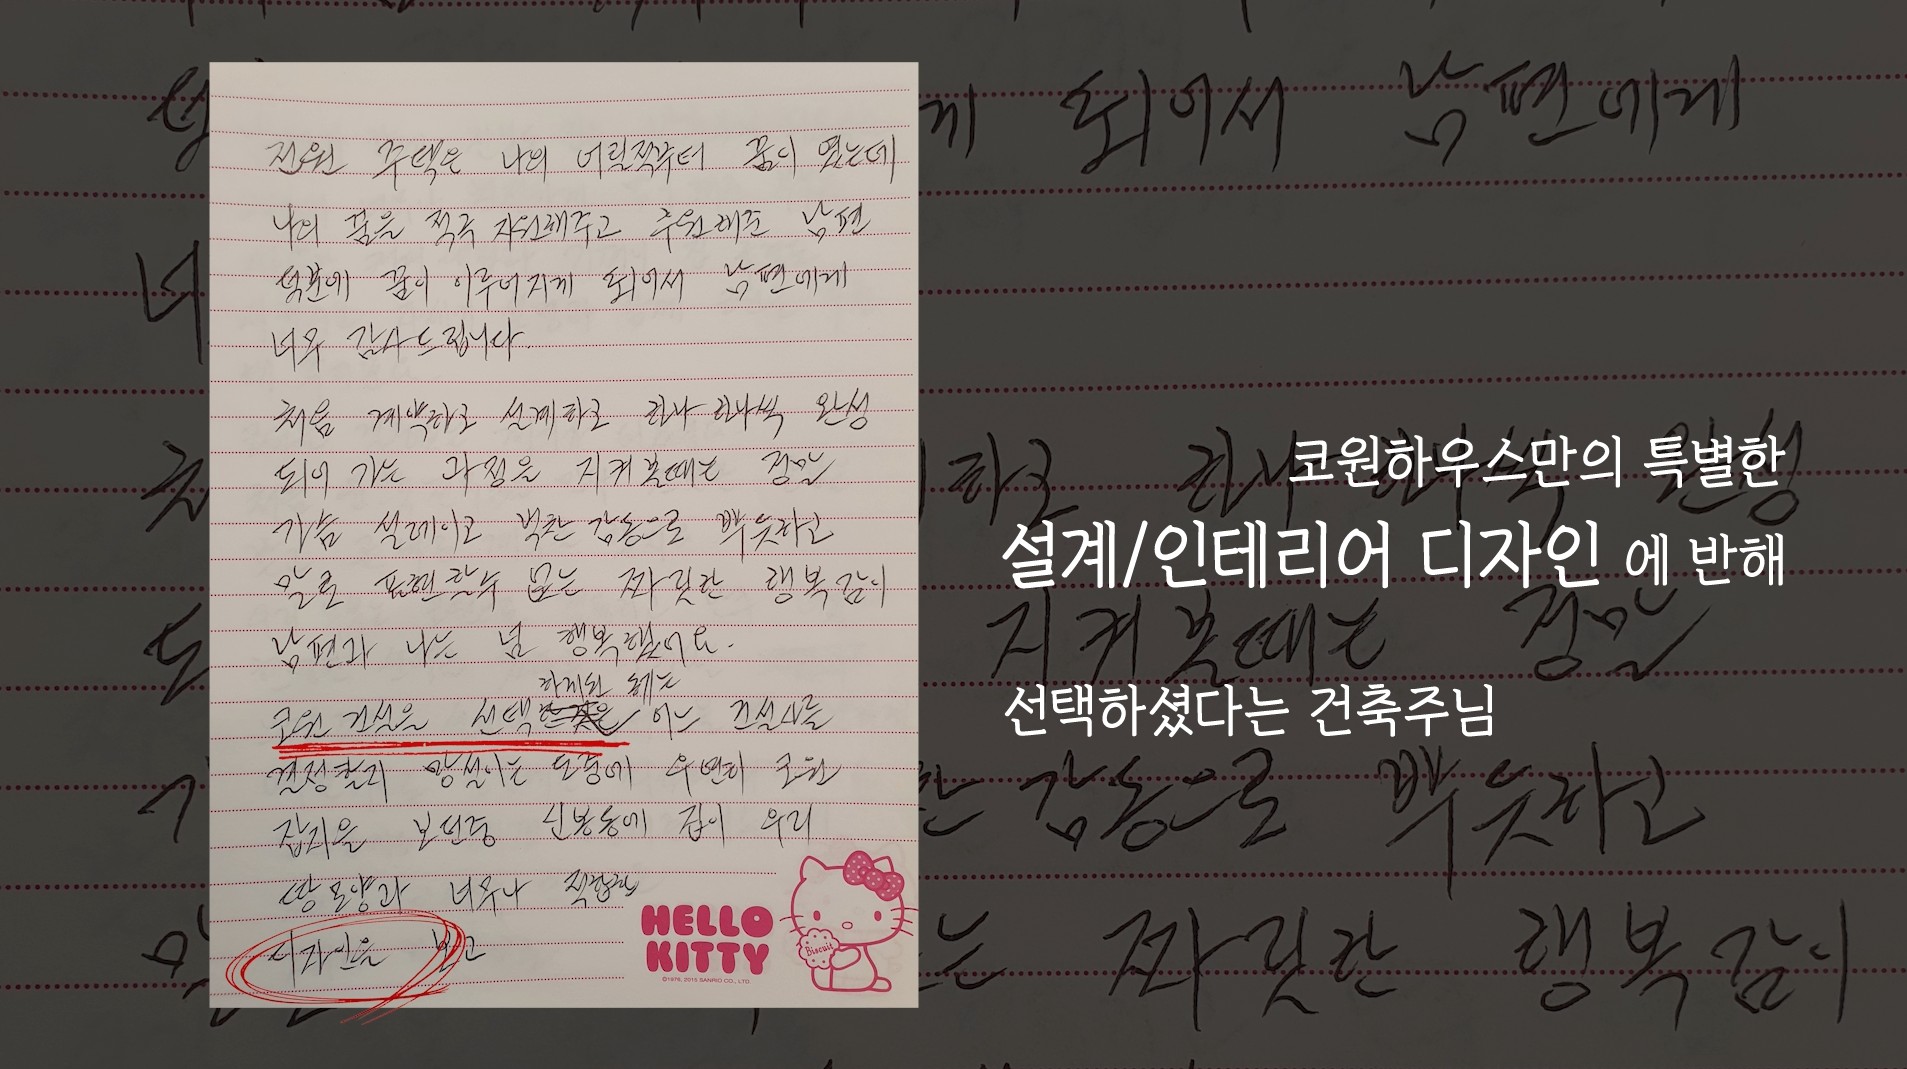 전원 주택은 나의 어릴적부터 꿈이 였는데
나의 꿈을 적극 지원해주고 후원해준 남편
덕분에 꿈이 이루어지게 되어서 남편에게
너무 감사드립니다.
처음 계약하고 설계하고 하나 하나씩 완성
되어 가는 과정을 지켜볼때는 정말
가슴 설레이고 벅찬 감동으로 뿌듯하고
말로 표현할수 없는 짜릿한 행복감이
남편과 나는 넘 행복했어요.
하게된 계는
코원 건설을 선택 어느 건설사를
결정할지 망설이는 도중에 우연히 코원
잡지을 보던중 신봉동에 집이 우리
땅 모양과 너무나 적합한
디자인을 보고
HELLO
KITTY
Biscuit
©1976, 2015 SANRIO CO., LTD.
코원하우스만의 특별한
설계/인테리어 디자인 에 반해
선택하셨다는 건축주님